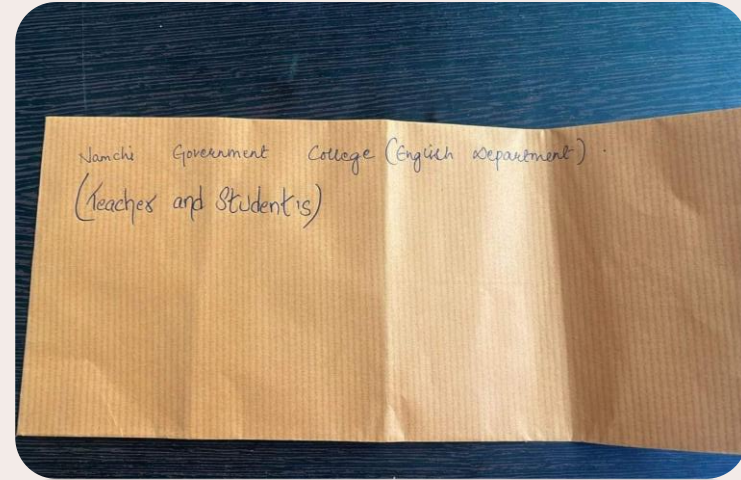 Namchi Government College (English Department).
(Teacher and Student's)